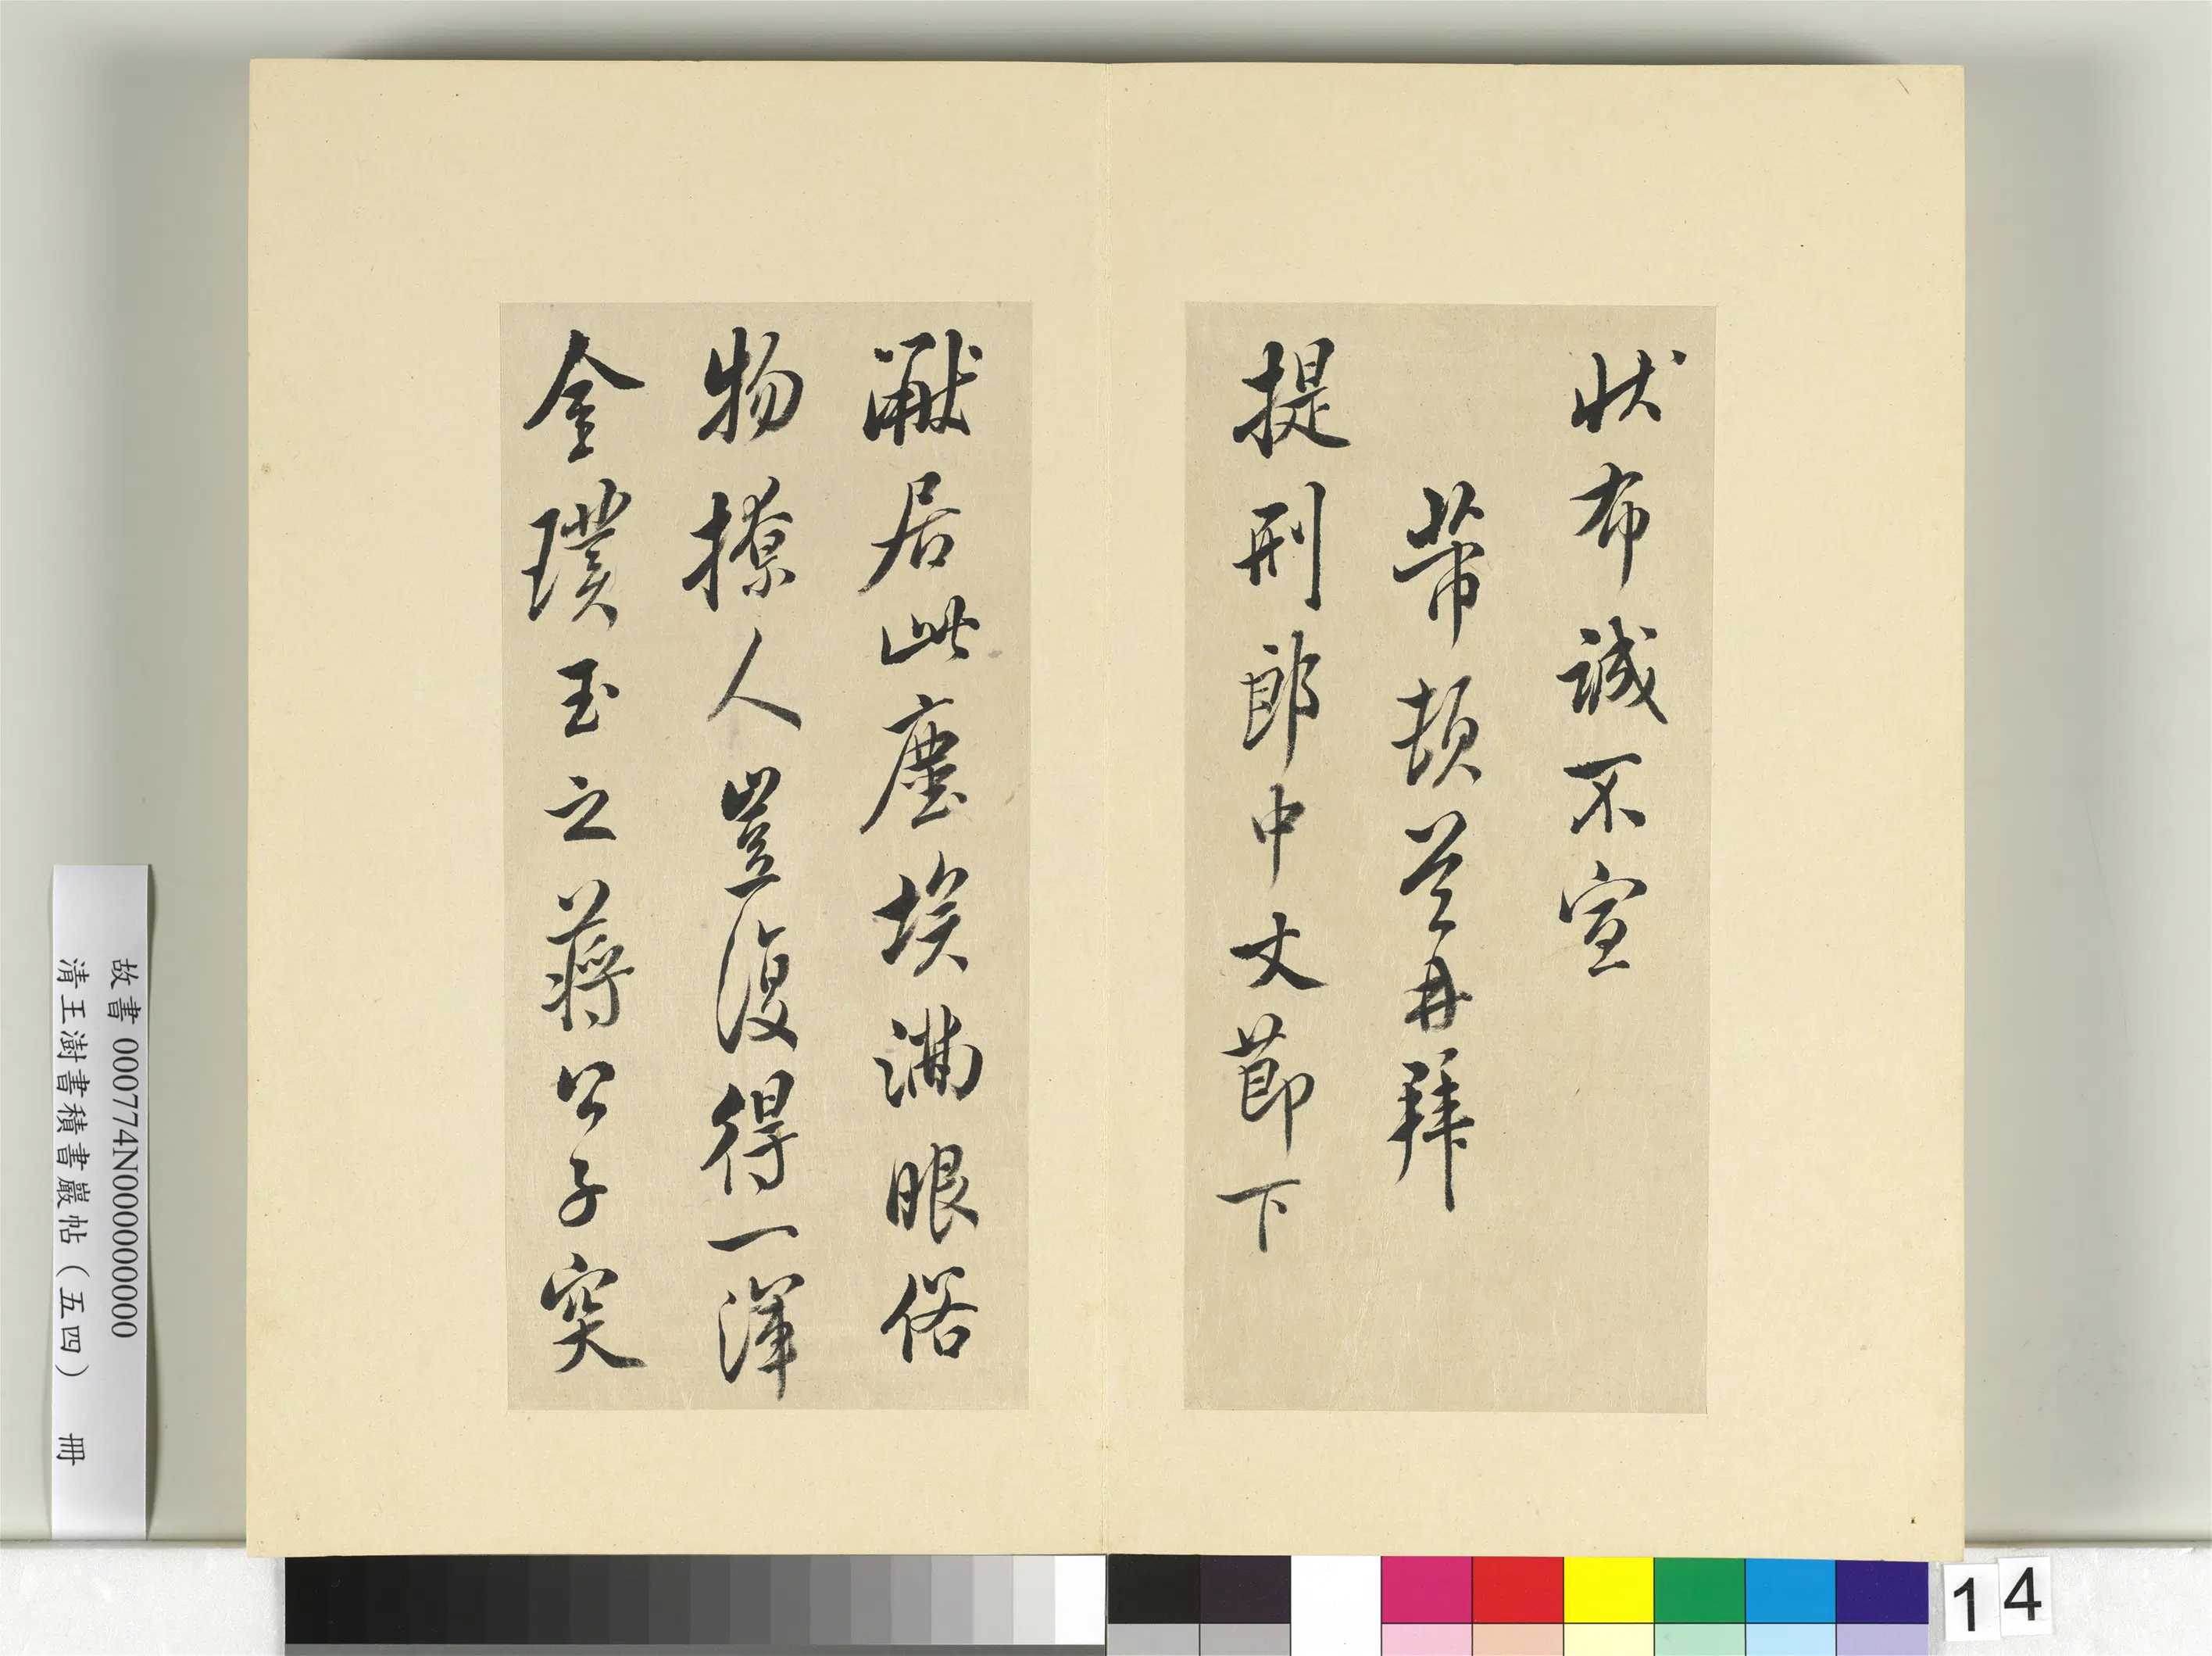 状布誠不宣
芾頓首再拜
提刑郎中丈節下
黻居此塵埃滿眼俗
物撩人豈復得一渾
金璞玉之蔣公子突
故書 000774N000000000
清王澍書積書巖帖(五四) 冊
14